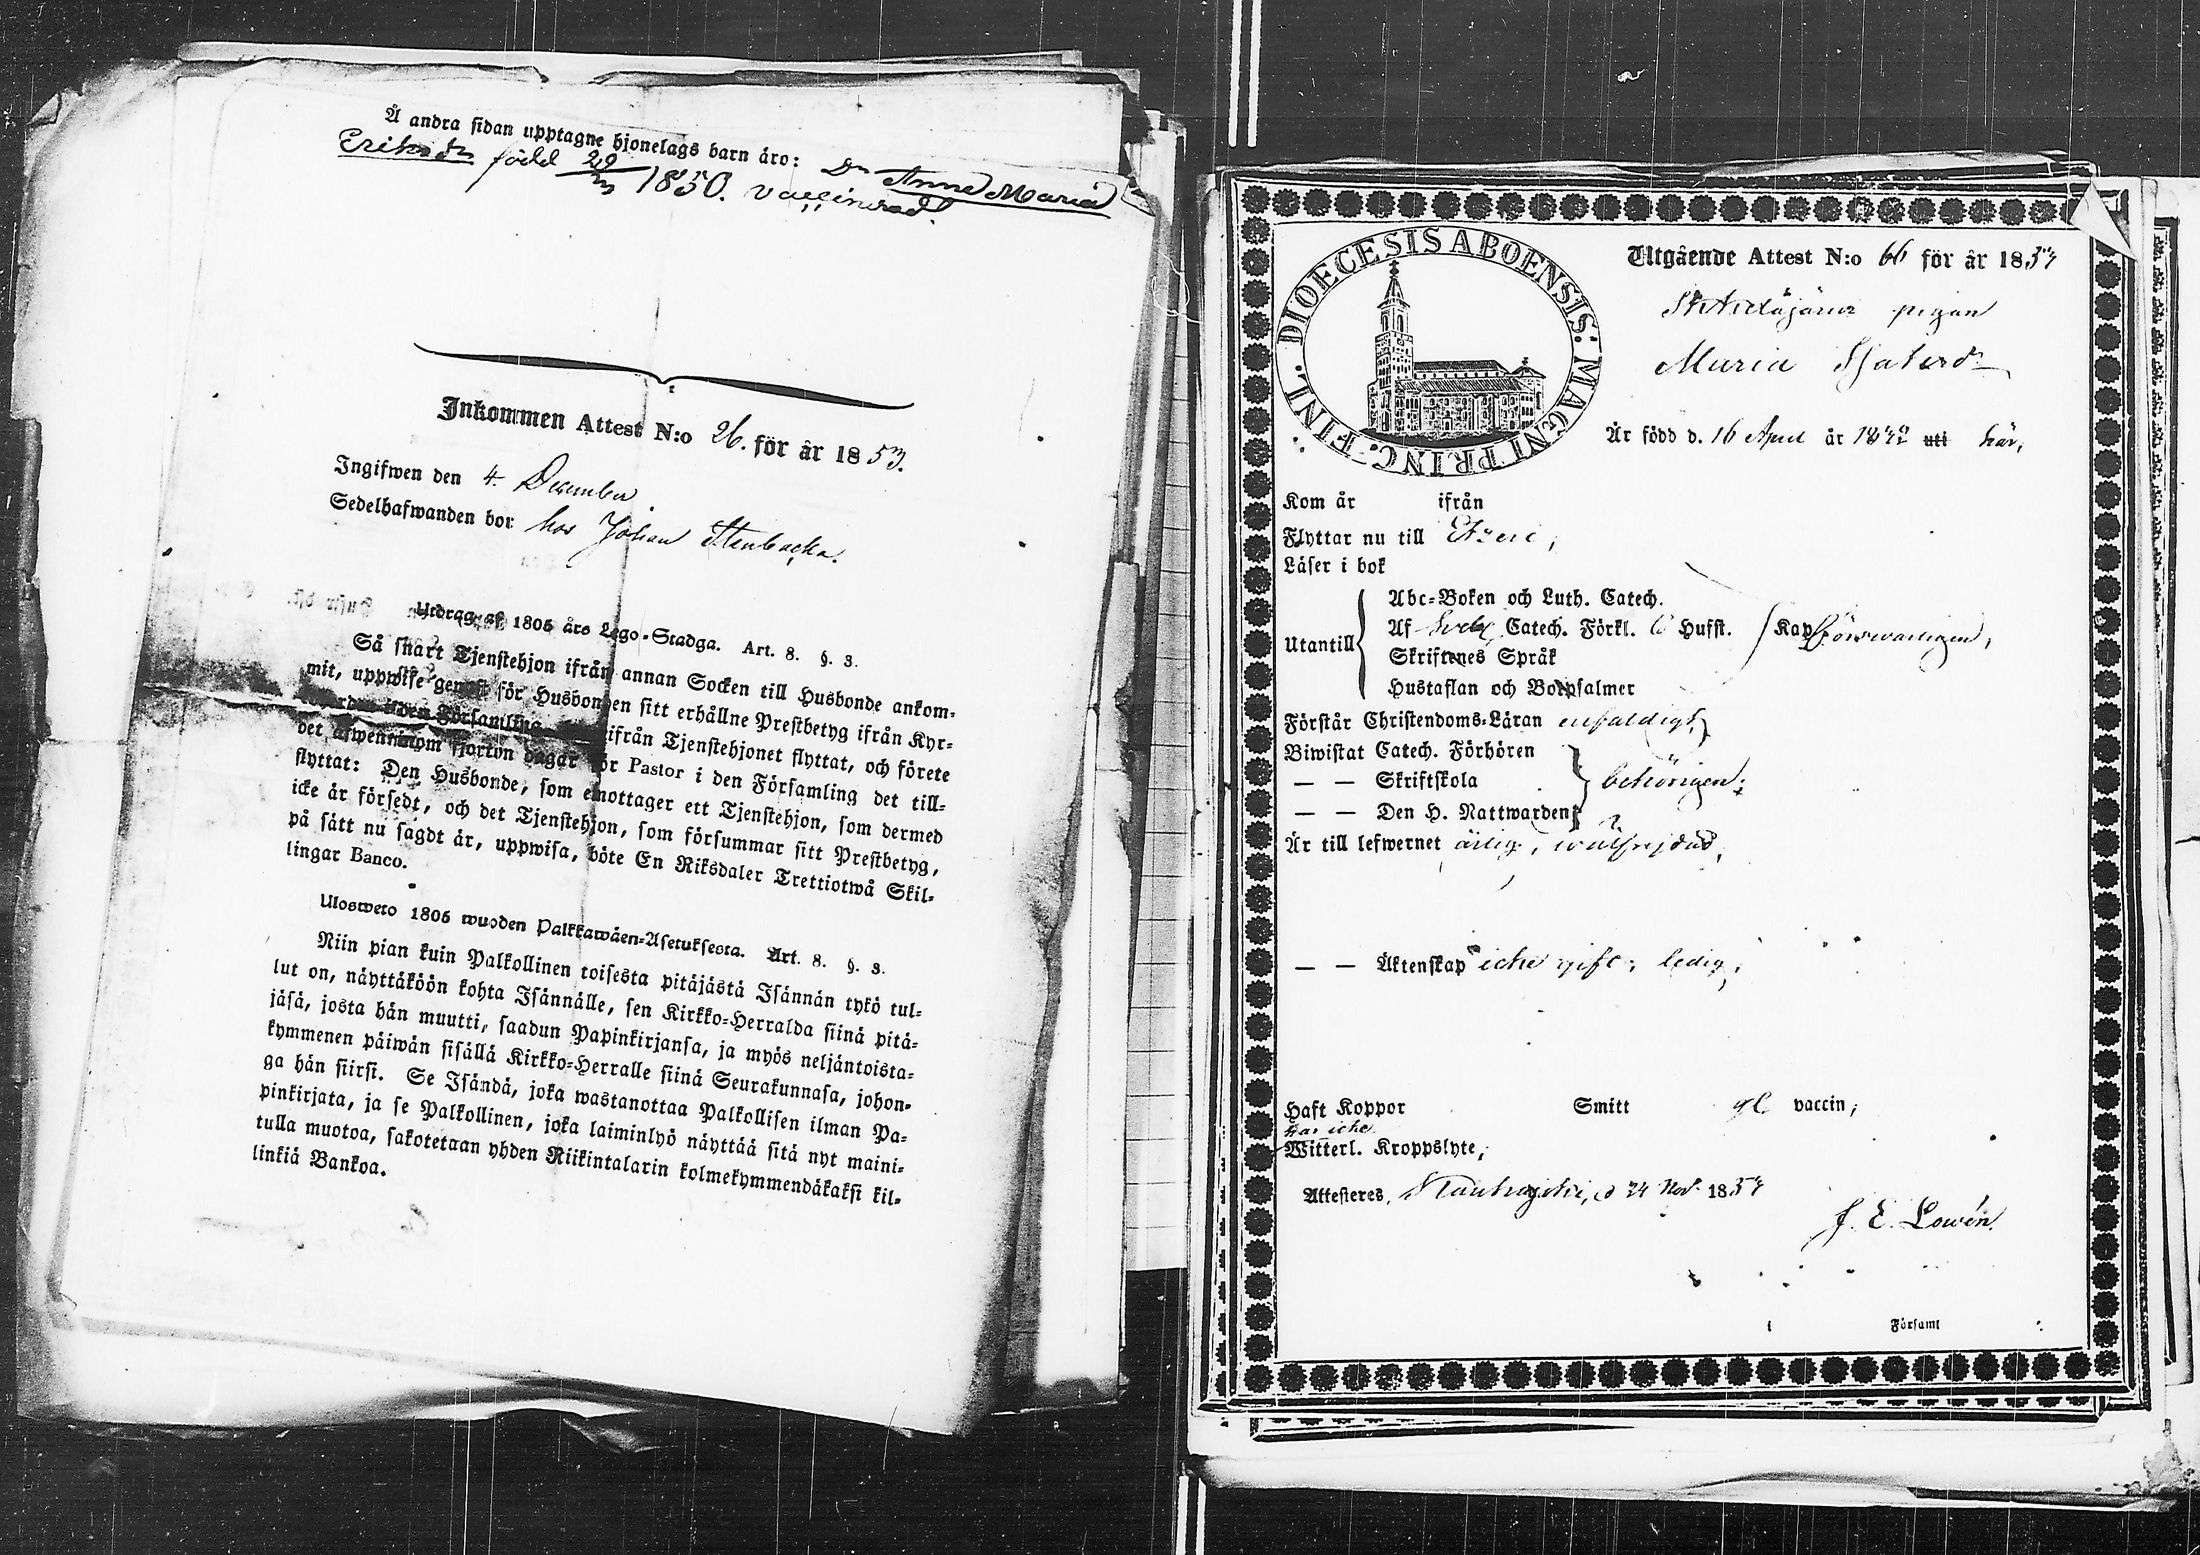 Å andra sidan upptagne hjonelags barn äro: Dr Anna Maria
Eriksdr född 29/3 1850. vaccinerad.
Inkommen Attest N:o 26. för år 1853.
Ingifwen den 4. December
Sedelhafwanden bor hos Johan Stenbacka.
Utdrag af 1805 års Lego-Stadga. Art. 8. §. 3.
Så snart Tjenstehjon ifrån annan Socken till Husbonde ankom-
mit, uppwise genast för Husbonden sitt erhållne Prestbetyg ifrån Kyr-
den Församling ifrån Tjenstehjonet flyttat, och förete
det äfwen inom fjorton dagar för Pastor i den Församling det till-
flyttat: Den Husbonde, som emottager ett Tjenstehjon, som dermed
icke är försedt, och det Tjenstehjon, som försummar sitt Prestbetyg,
på sätt nu sagdt är, uppwisa, böte En Riksdaler Trettiotwå Skil-
lingar Banco.
Ulosweto 1805 wuoden Palkkawäen-Asetuksesta. Art. 8. §. 3.
Niin pian kuin Palkollinen toisesta pitäjästä Isännän tykö tul-
lut on, näyttäköön kohta Isännälle, sen Kirkko-Herralda siinä pitä-
jäsä, josta hän muutti, saadun Papinkirjansa, ja myös neljäntoista-
kymmenen päiwän sisällä Kirkko-Herralle siinä Seurakunnasa, johon-
ga hän siirsi. Se Isändä, joka wastanottaa Palkollisen ilman Pa-
pinkirjata, ja se Palkollinen, joka laiminlyö näyttää sitä nyt maini-
tulla muotoa, sakotetaan yhden Riikintalarin kolmekymmendäkaksi kil-
linkiä Bankoa.
DIOECESIS ABOENSIS: MAGNI PRINC. FINL.
Utgående Attest N:o 66 för år 185
pigan
Maria
Är född d. 16 April år 18 uti här,
Kom år ifrån
Flyttar nu till Etseri,
Läser i bok
Utantill
Abc-Boken och Luth. Catech.
Af Sveb. Catech. Förkl. 6 Hufst. Kap. försvarligen,
Skriftenes Språk
Hustaflan och Botpsalmer
Förstår Christendoms-Läran enfaldigt,
Biwistat Catech. Förhören
— — Skriftskola behörigen;
— — Den H. Nattwarden
Är till lefwernet ärlig, wälfrejdad,
— — Äktenskap icke gift, ledig,
Haft Koppor Smitt gl vaccin;
har icke
Witterl. Kroppslyte;
Attesteres, d 24 Nov. 185
J. E. Lowén.
Församl